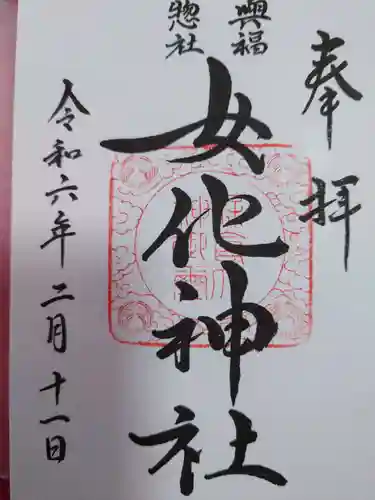 奉拝
興福
惣社
女化神社
令和六年二月十一日